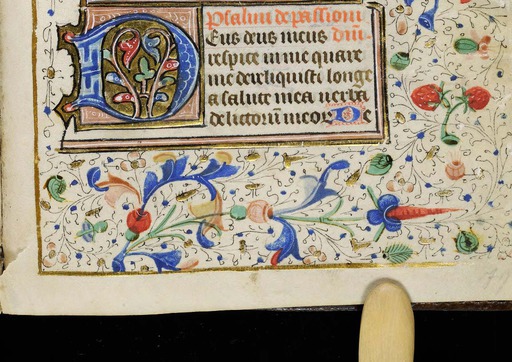 Psalmi de passioni
Eus deus meus dni.
respice in me quare
me dereliquisti longe
a salute mea uerba
delictorū meor D e